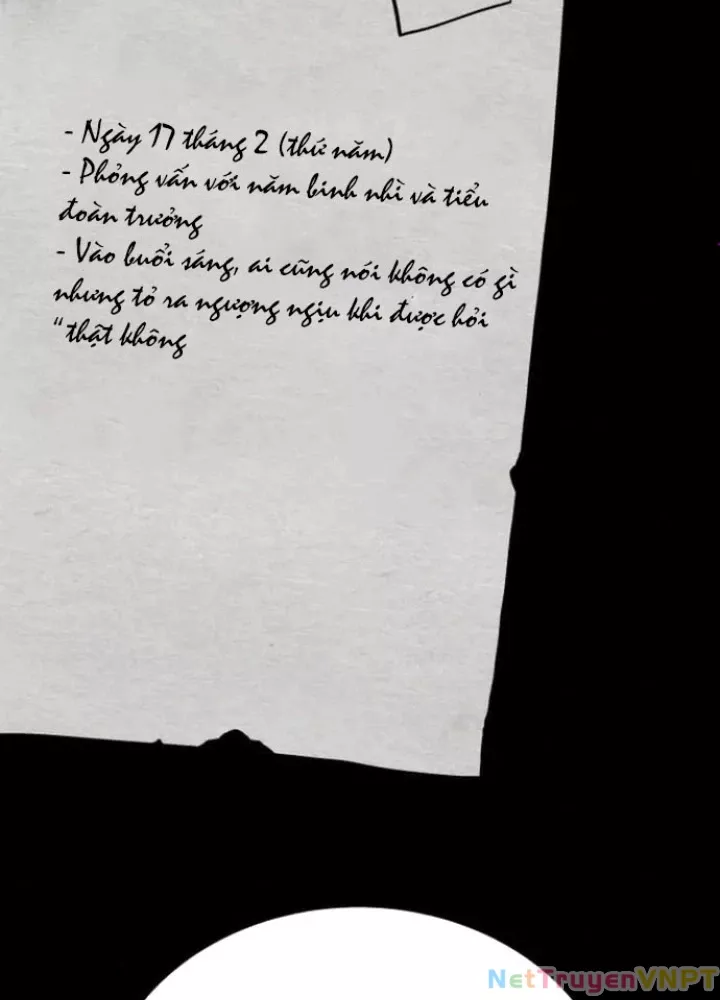 - Ngày 17 tháng 2 (thứ năm)
- Phỏng vấn với năm binh nhì và tiểu
đoàn trưởng
- Vào buổi sáng, ai cũng nói không có gì
nhưng tỏ ra ngượng ngịu khi được hỏi
“thật không
NetTruyenVNPT